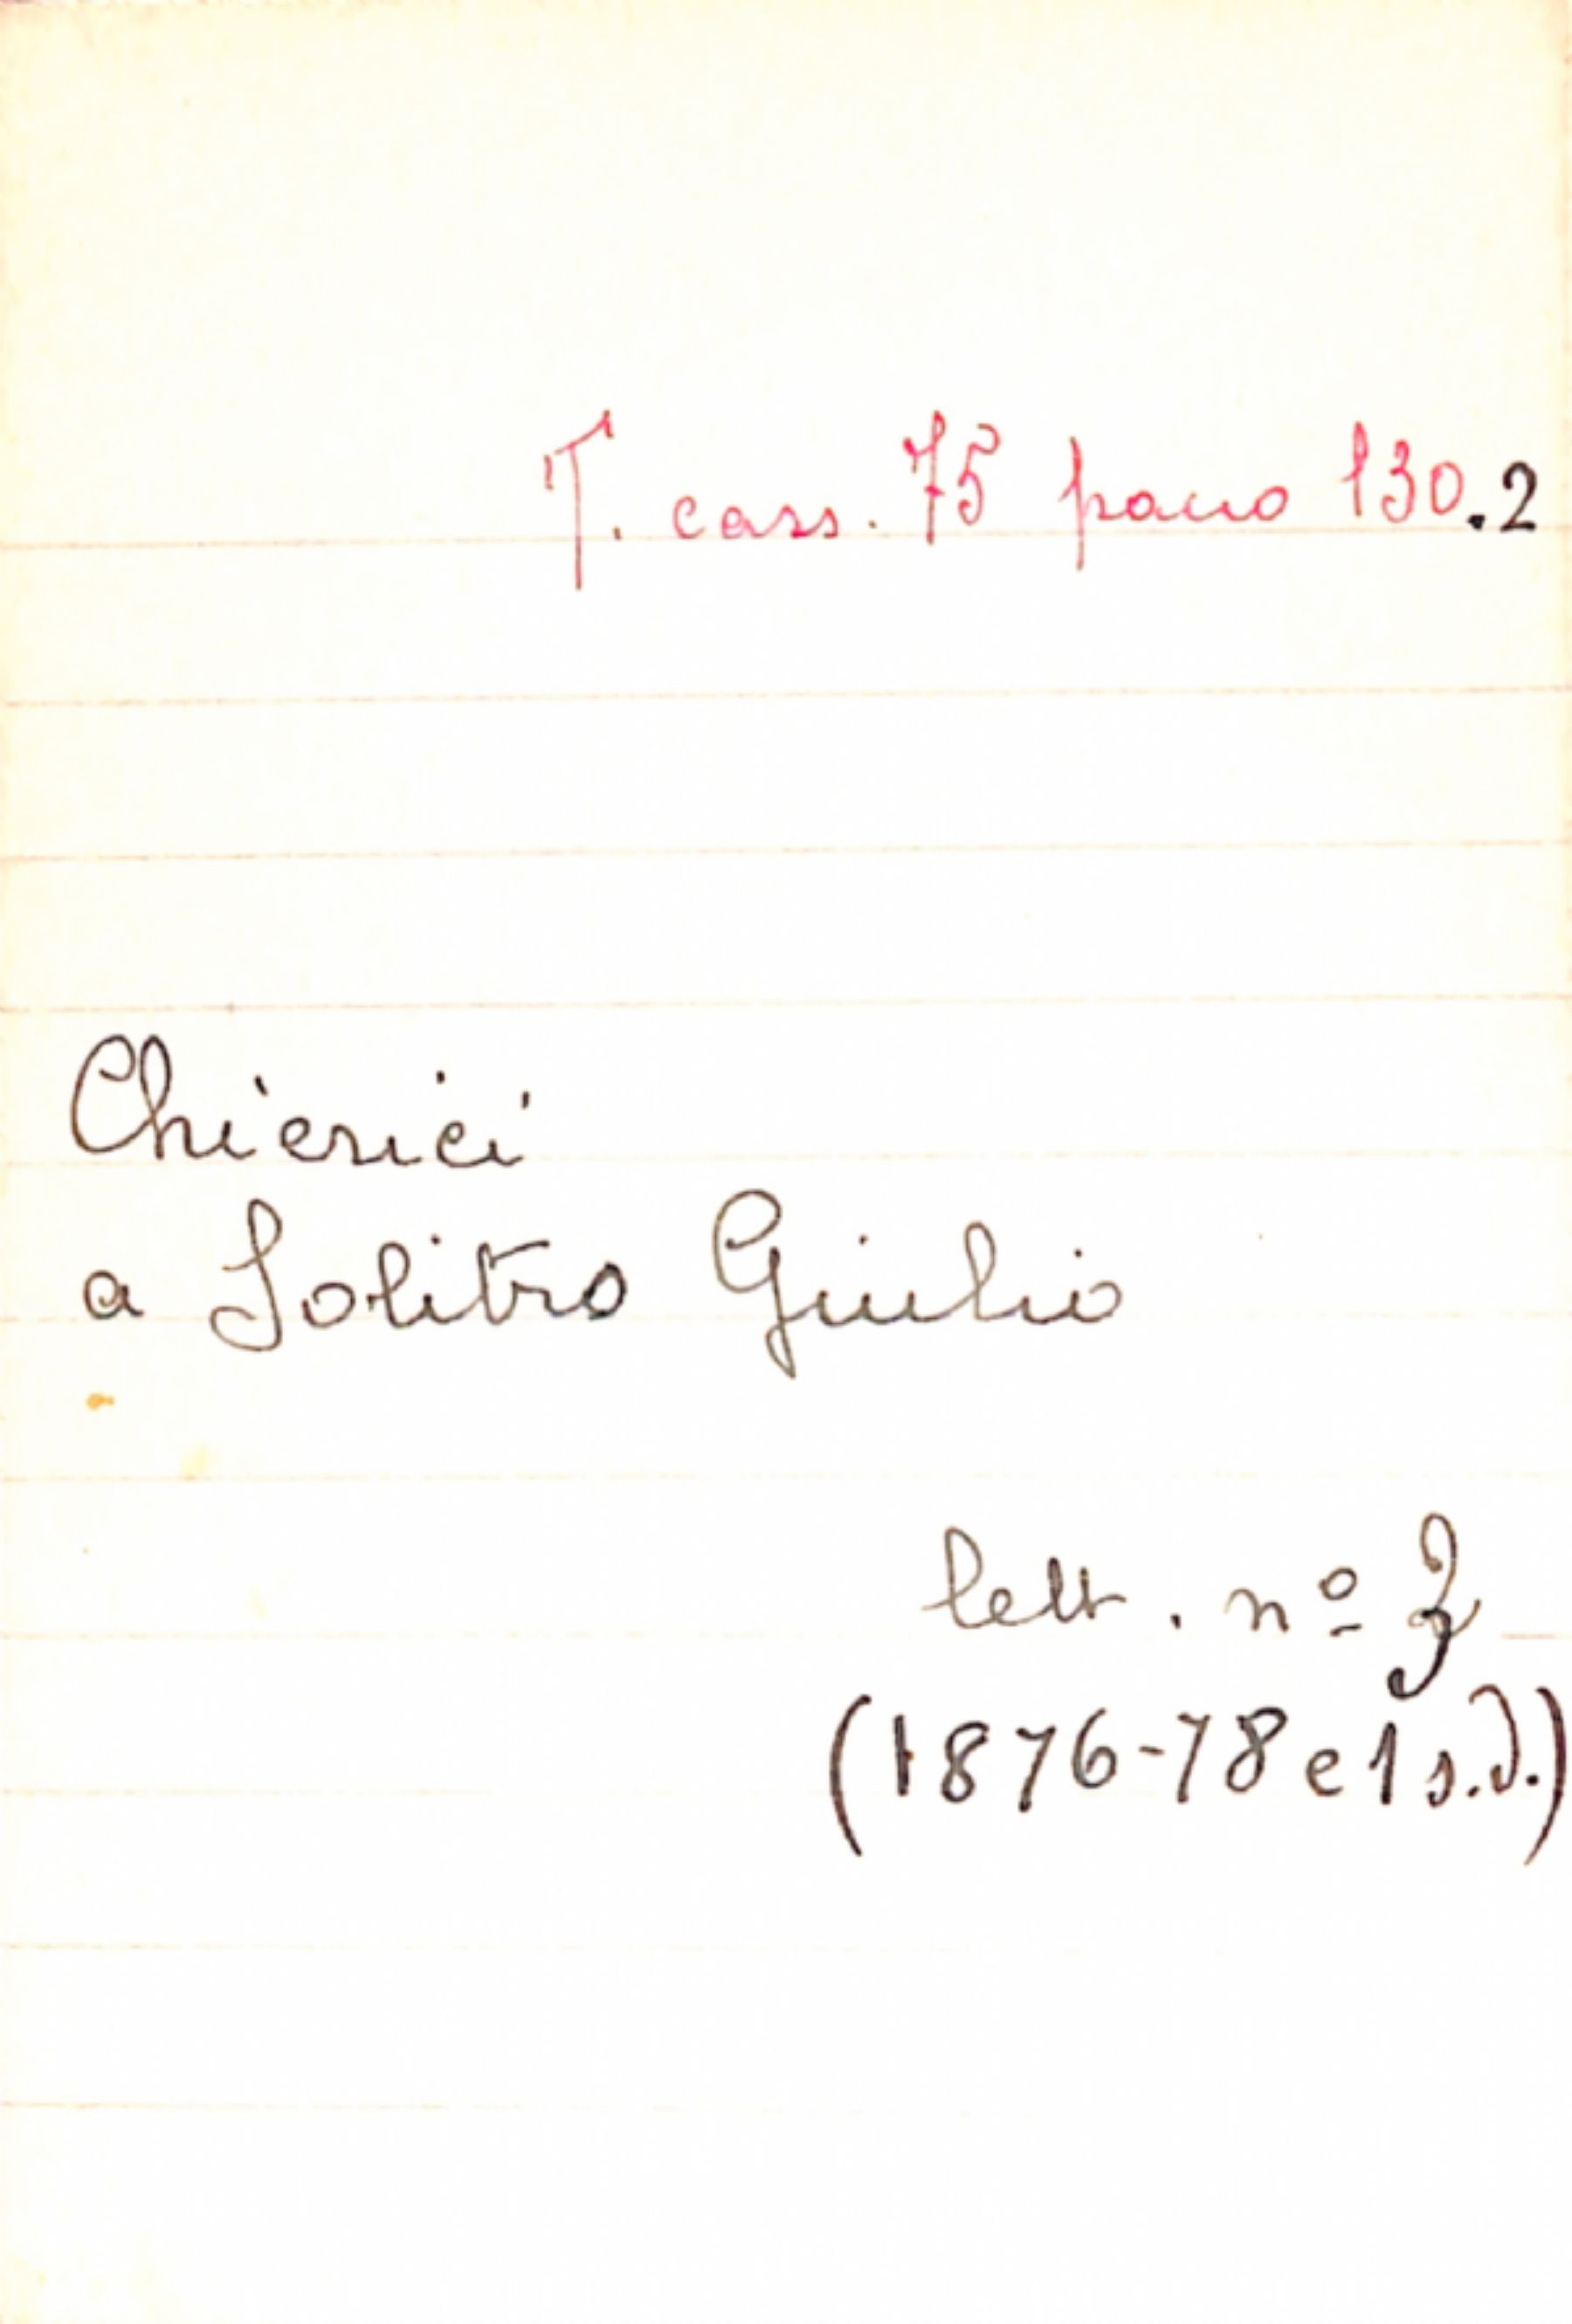 T. cass. 75 pacco 130.2
Chierici
a Solitro Giulio
lett. nº 3
(1876-78 e 1 s.d.)